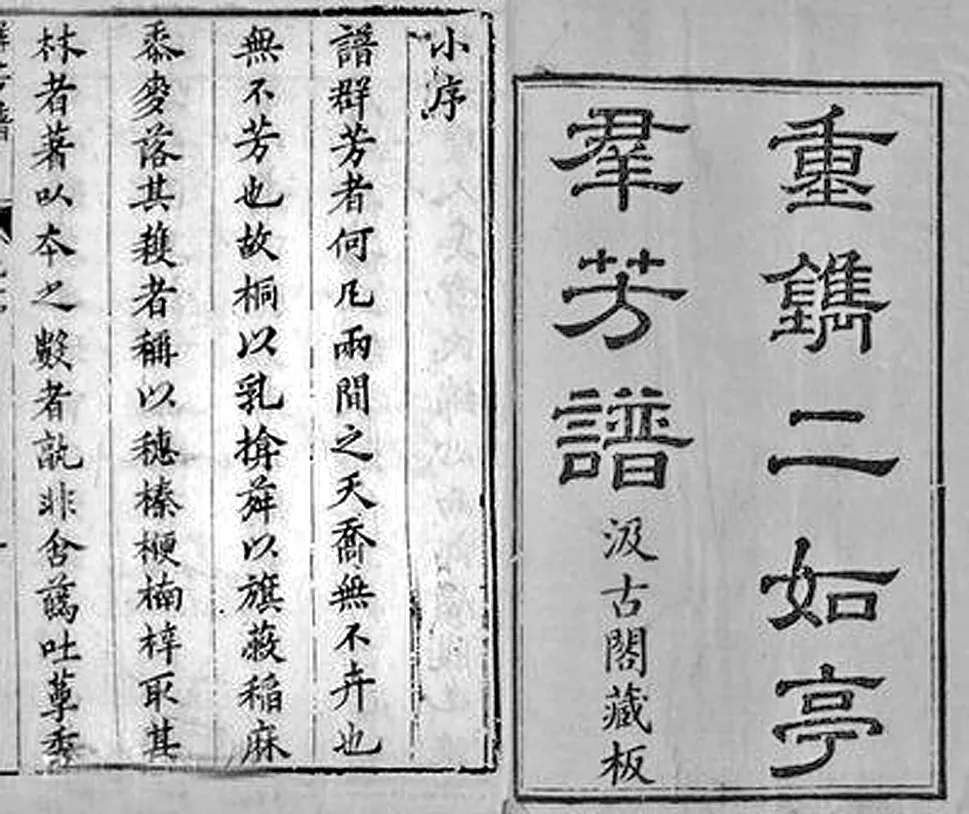 重鐫二如亭
羣芳譜
汲古閣藏板
小序
譜群芳者何凡兩間之夭喬無不卉也
無不芳也故桐以乳搶舜以旗蔽稻麻
黍麥落其穫者稱以穗榛楩楠梓取其
林者著以本之數者孰非含蕊吐萼秀